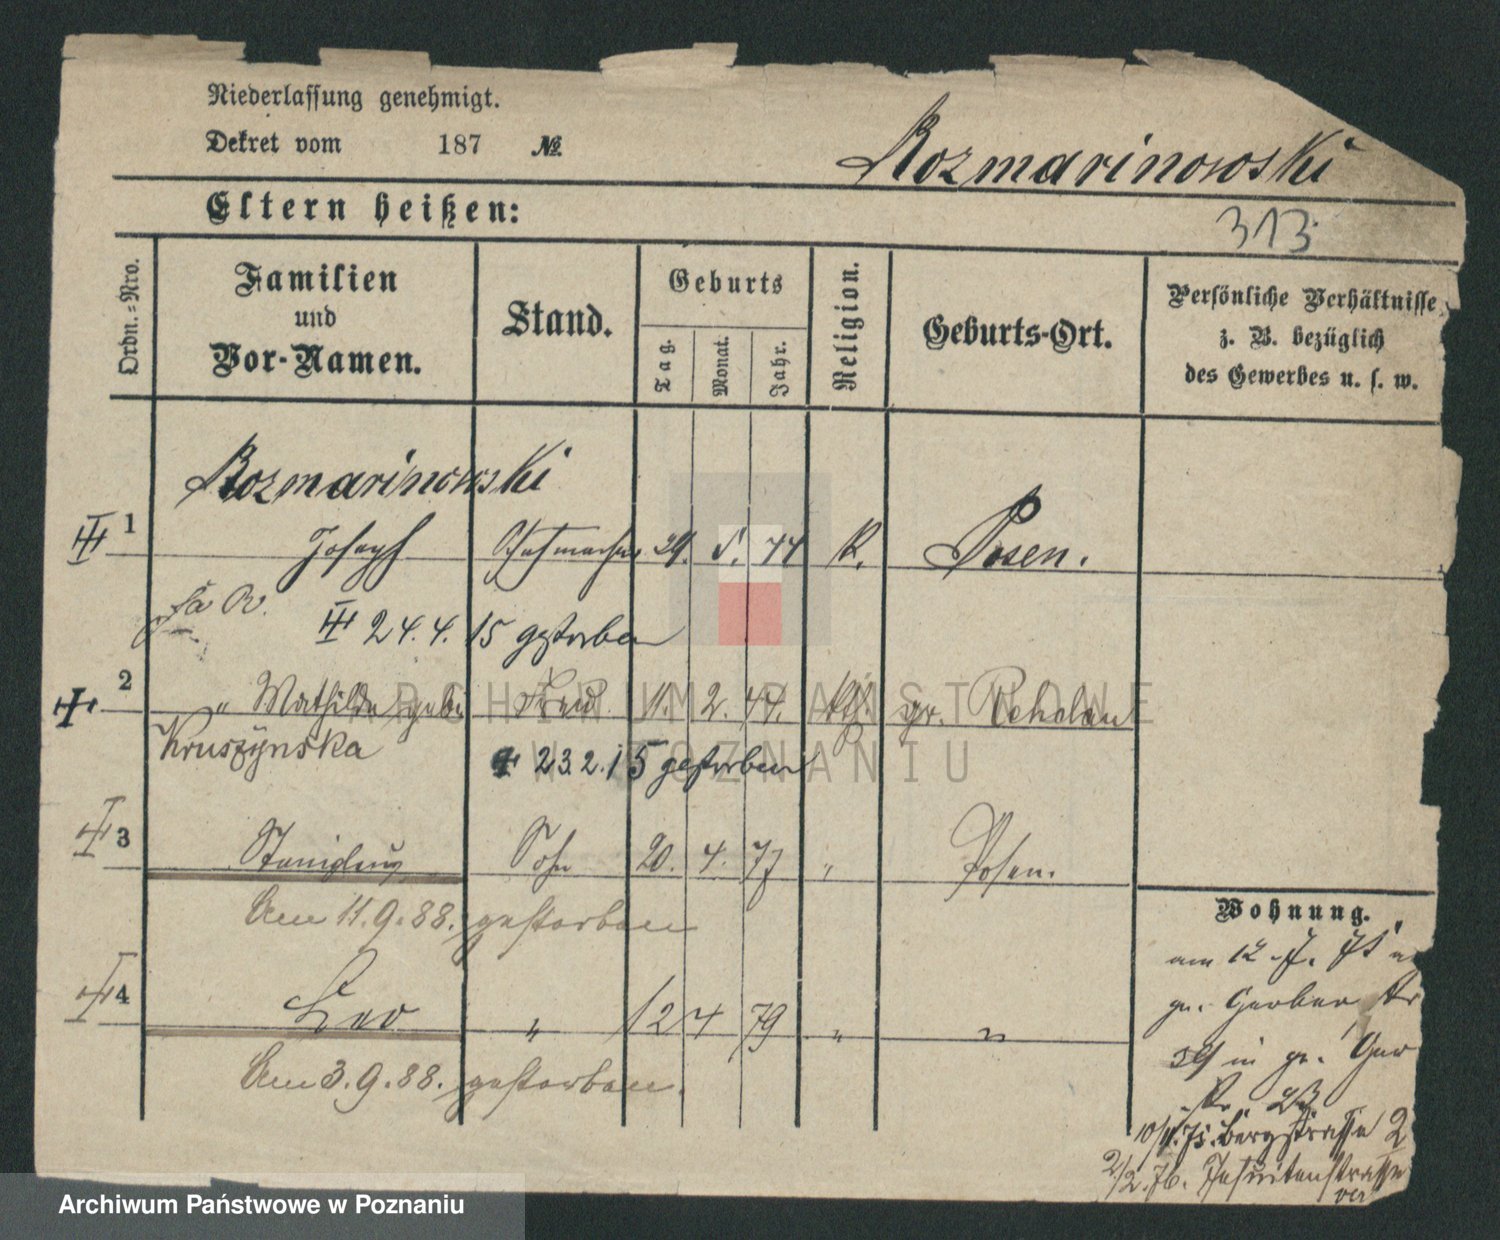 Niederlassung genehmigt.
Dekret vom 187 №
Rozmarinowski
Eltern heißen:
313
Ordn.-Nro.
Familien
und
Vor-Namen.
Stand.
Geburts
Tag.
Monat.
Jahr.
Religion.
Geburts-Ort.
Persönliche Verhältnisse
z. B. bezüglich
des Gewerbes u. s. w.
Rozmarinowski
1 Joseph Schuhmacher 29. 44 K. Posen.
24. 4. 15 gestorben
2 " Mathilde geb. Frau 11. 2. 44. Kth. gr.
Kruszynska
23. 2. 15 gestorben
3 Stanislaus Sohn 20. 4. 77 " Posen.
Am 11. 9. 88. gestorben
4 Leo " 12 4 79 " "
Am 3. 9. 88. gestorben.
Wohnung.
am 12. 7. 75
gr. Gerber Str
39 in gr. Ger
Str. 23
Bergstrasse 2
2/2. 76. Jesuitenstrasse
ARCHIWUM PAŃSTWOWE
W POZNANIU
Archiwum Państwowe w Poznaniu